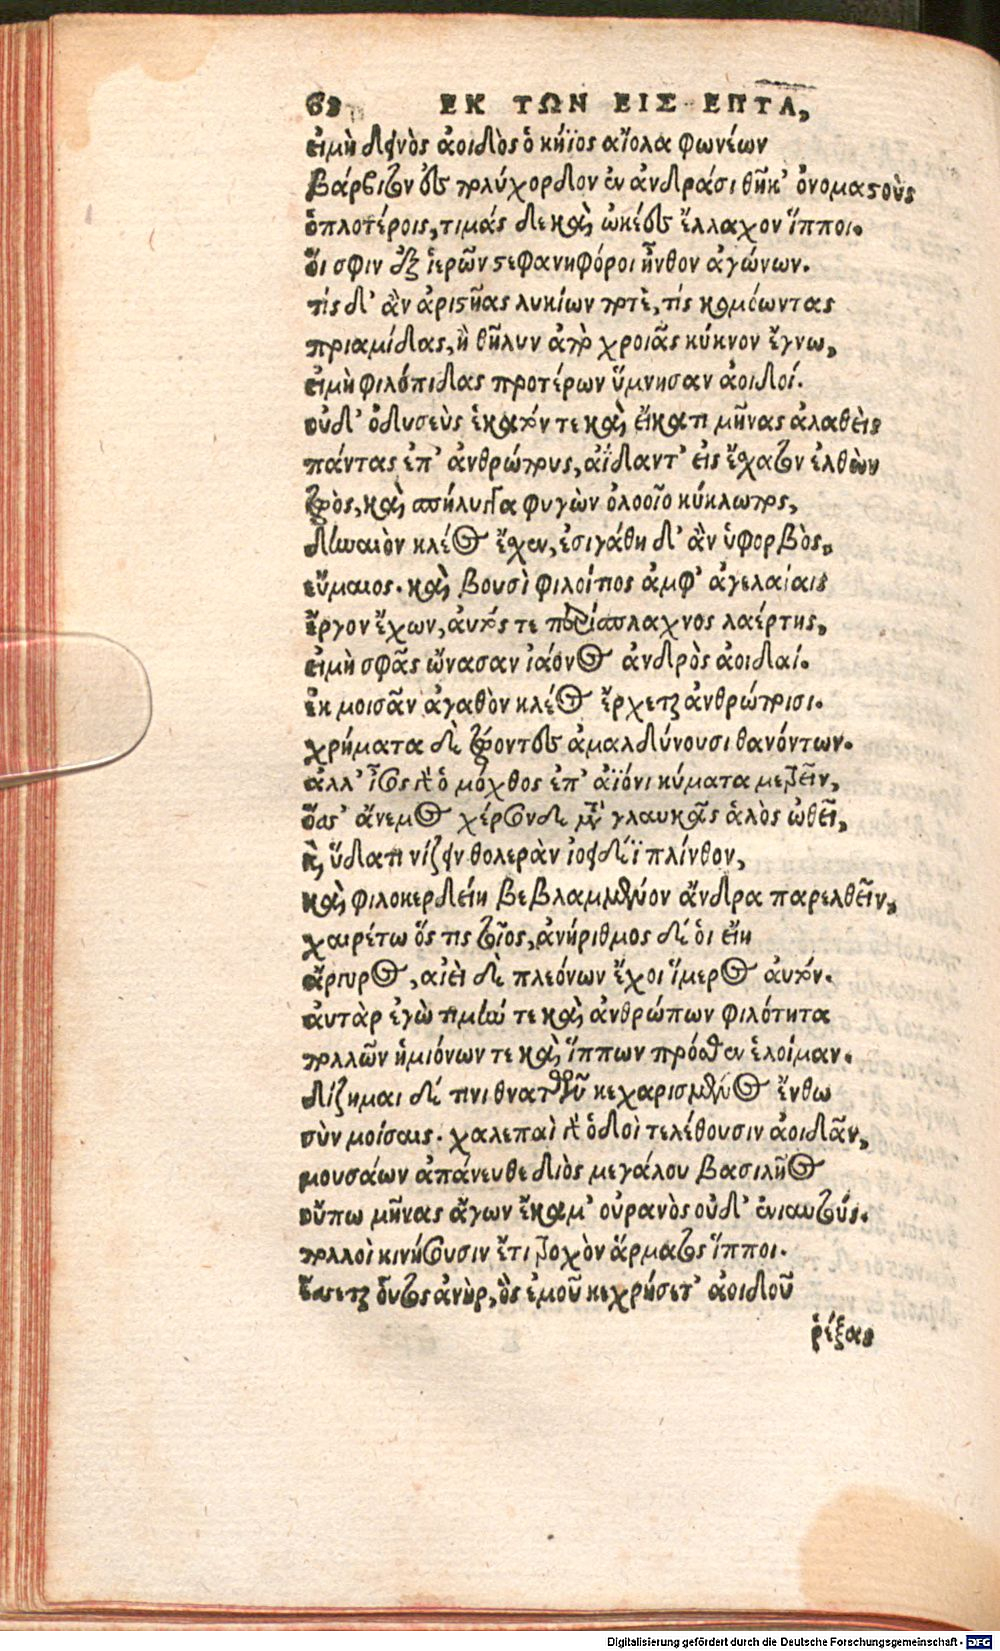 62 ΕΚ ΤΩΝ ΕΙΣ ΕΠΤΑ,
εἰμὴ δεινὸς ἀοιδὸς ὁ κήϊος αἴολα φωνέων
βάρβιτον ἐς πολύχορδον ἐν ἀνδράσι θῆκ' ὀνομαστοὺς
ὁπλοτέροις, τιμάς δε καὶ ὠκέες ἔλλαχον ἵπποι.
ὅι σφιν ἐξ ἱερῶν στεφανηφόροι ἦνθον ἀγώνων.
τίς δ' ἂν ἀριστῆας λυκίων ποτὲ, τίς κομόωντας
πριαμίδας, ἢ θῆλυν ἀπὸ χροιᾶς κύκνον ἔγνω,
εἰμὴ φιλόπιδας προτέρων ὕμνησαν ἀοιδοί.
οὐδ' ὀδυσεὺς ἑκατόν τε καὶ εἴκατι μῆνας ἀλαθεὶς
πάντας ἐπ' ἀνθρώπους, ἀΐδαντ' εἰς ἔχατον ἐλθὼν
ζωὸς, καὶ σπήλυγγα φυγὼν ὀλοοῖο κύκλωπος,
δηναιὸν κλέος ἔχεν, ἐσιγάθη δ' ἂν ὑφορβὸς,
εὔμαιος. καὶ βουσὶ φιλοίτιος ἀμφ' ἀγελαίαις
ἔργον ἔχων, ἀυτός τε περίσπλαχνος λαέρτης,
εἰμὴ σφᾶς ὤνασαν ἰάονος ἀνδρὸς ἀοιδαί.
ἐκ μοισᾶν ἀγαθὸν κλέος ἔρχεται ἀνθρώποισι.
χρήματα δὲ ζώοντες ἀμαλδύνουσι θανόντων.
ἀλλ' ἶσος γὰρ ὁ μόχθος ἐπ' ἀϊόνι κύματα μετρεῖν,
ὅσσ' ἄνεμος χέρσονδε μετὰ γλαυκᾶς ἁλὸς ὠθεῖ,
ἢ ὕδατι νίζειν θολερὰν ἰοειδέϊ πλίνθον,
καὶ φιλοκερδείη βεβλαμμένον ἄνδρα παρελθεῖν,
χαιρέτω ὅς τις τοῖος, ἀνήριθμος δέ ὁι εἴη
ἄργυρος, αἰεὶ δὲ πλεόνων ἔχοι ἵμερος ἀυτόν.
ἀυτὰρ ἐγὼ τιμήν τε καὶ ἀνθρώπων φιλότητα
πολλῶν ἡμιόνων τε καὶ ἵππων πρόσθεν ἑλοίμαν.
δίζημαι δέ τινι θνατῶν κεχαρισμένος ἔνθω
σὺν μοίσαις. χαλεπαὶ γὰρ ὁδοὶ τελέθουσιν ἀοιδᾶν,
μουσάων ἀπάνευθε διὸς μεγάλου βασιλῆος
οὔπω μῆνας ἄγων ἔκαμ' οὐρανὸς οὐδ' ἐνιαυτούς.
πολλοὶ κινήσουσιν ἔτι τροχὸν ἅρματος ἵπποι.
ἔσσεται οὗτος ἀνὴρ, ὃς ἐμοῦ κεχρήσετ' ἀοιδοῦ
ῥέξας
Digitalisierung gefördert durch die Deutsche Forschungsgemeinschaft - DFG